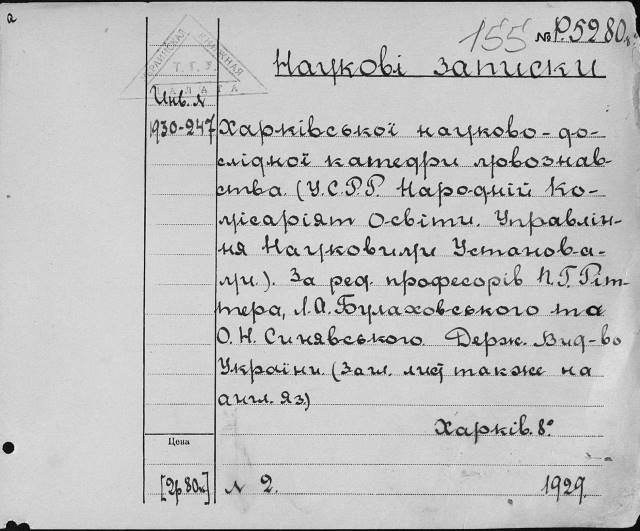 а
155 № Р.5280
УКРАИНСКАЯ КНИЖНАЯ
Т.Г.У.
ПАЛАТА
Наукові записки
Инв. №
1930-247
Харківської науково-до-
слідної катедри мовознав-
ства. (У.С.Р.Р. Народній Ко-
місаріят Освіти. Управлін-
ня Науковими Установа-
ми.). За ред. професорів П.Г.Ріт-
тера, Л.А.Булаховського та
О.Н. Синявського. Держ. Вид-во
України. (Загл. лист також на
англ. яз)
Харків. 8°.
Цена
[2р.80к]
№ 2.
1929.